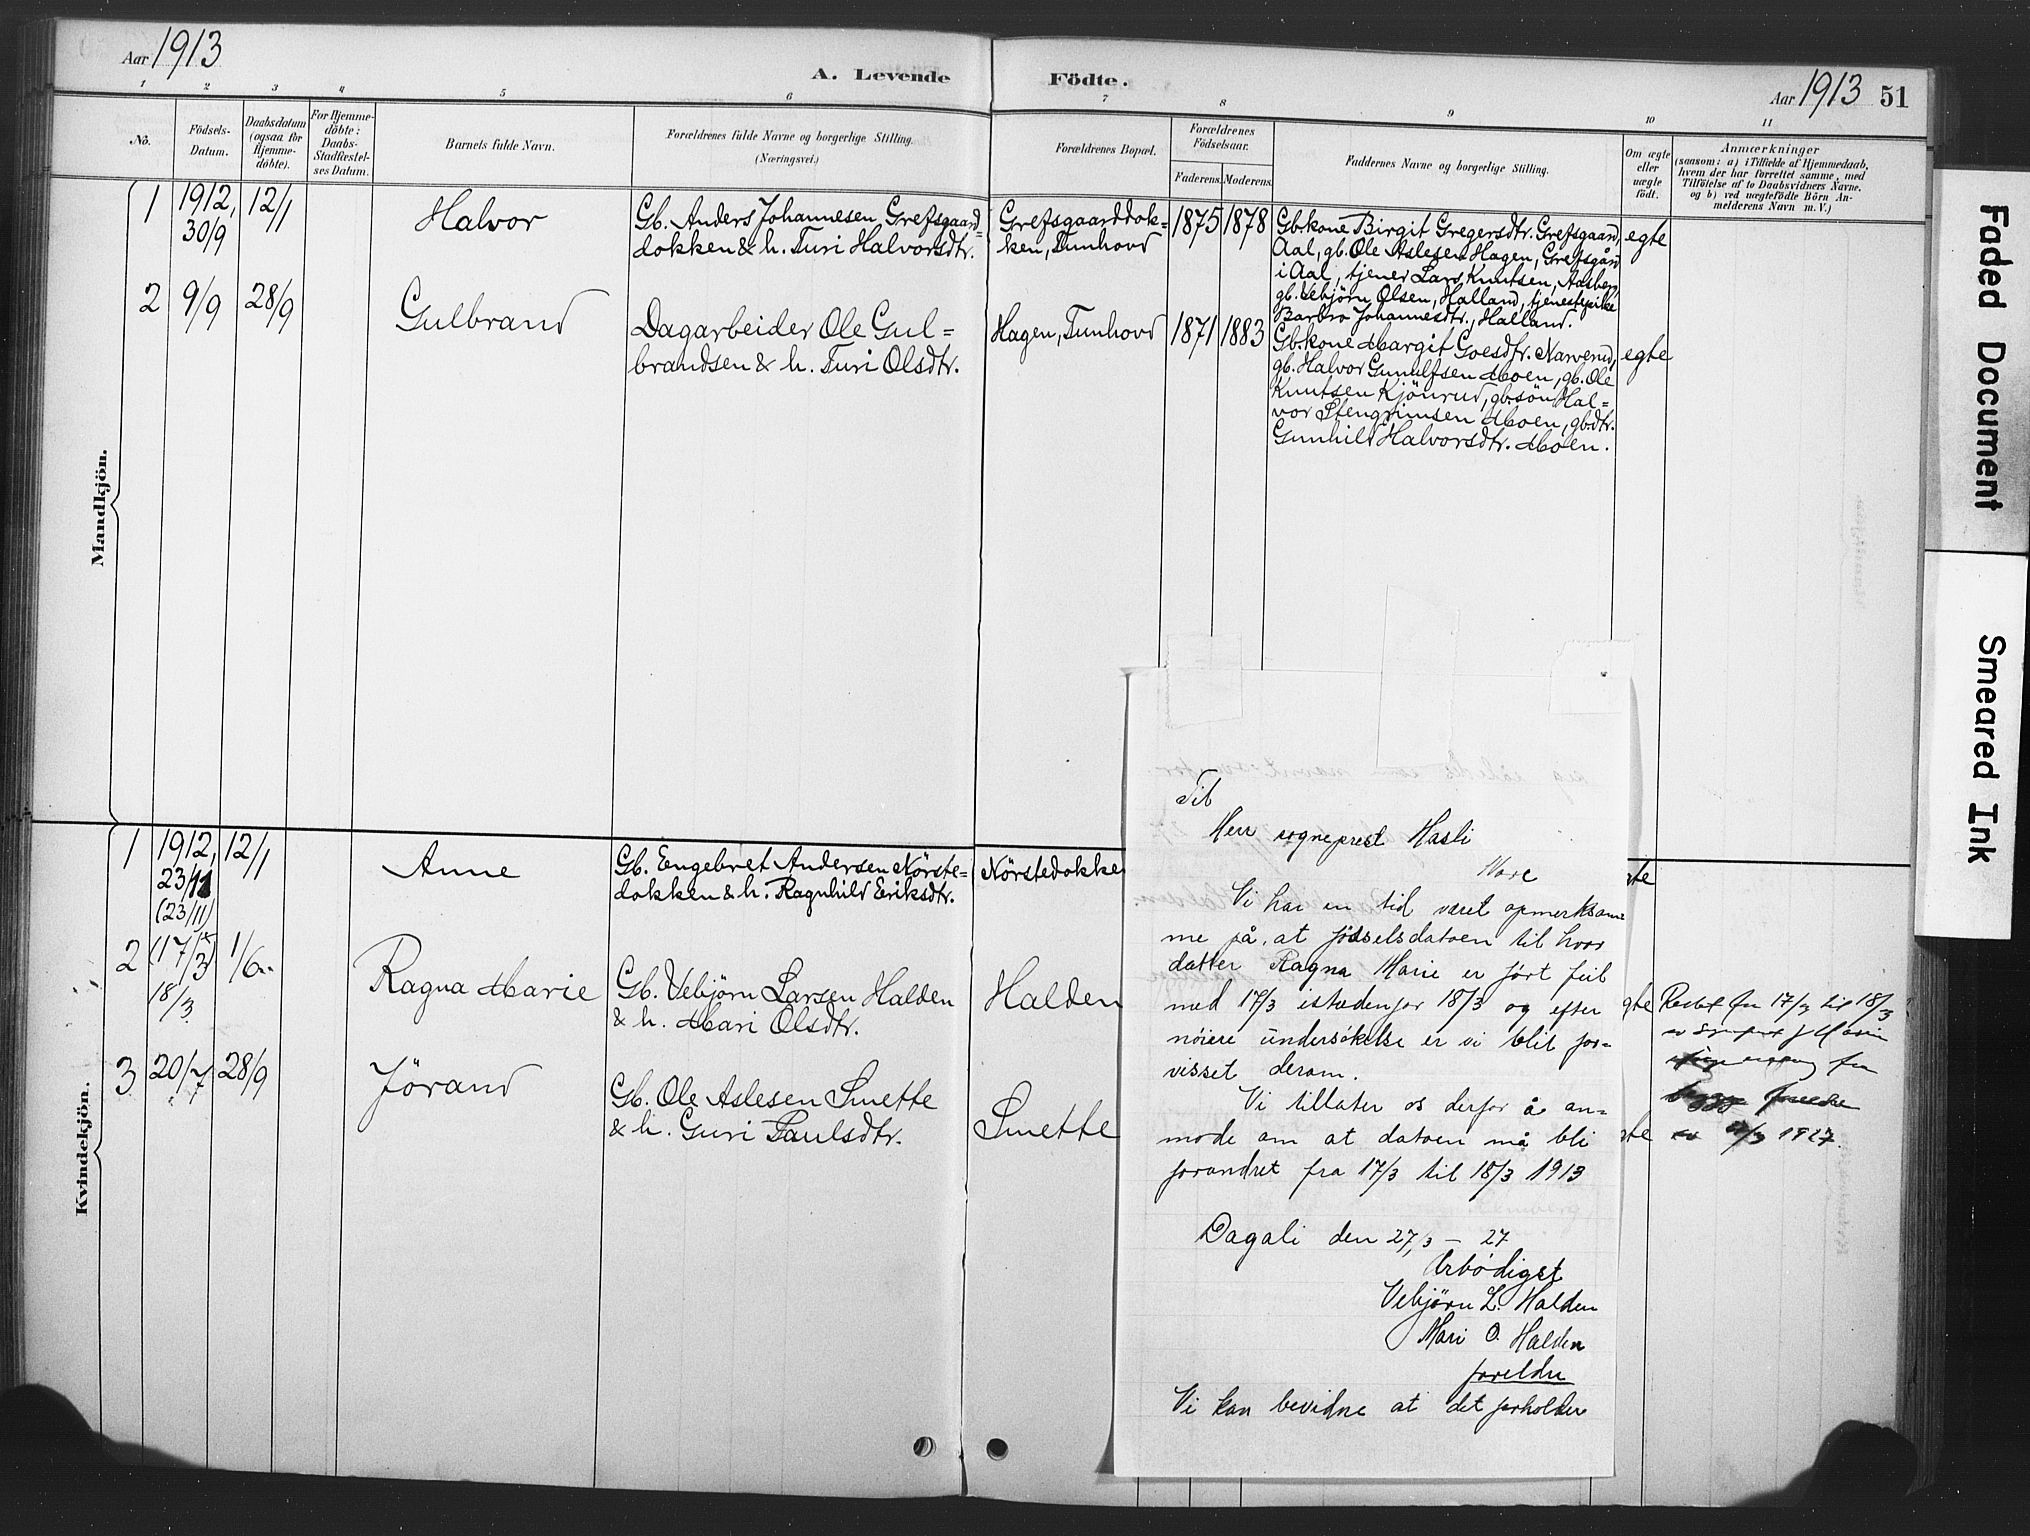 Aar 1913
A. Levende
Födte.
Aar 1913 51
1 2 3 4 5 6 7 8 9 10 11
No.
Födsels-
Datum.
Daabsdatum
(ogsaa for
Hjemme-
döbte).
For Hjemme-
döbte:
Daabs-
Stadfæstel-
ses Datum.
Barnets fulde Navn.
Forældrenes fulde Navne og borgerlige Stilling.
(Næringsvei.)
Forældrenes Bopæl.
Forældrenes
Födselsaar.
Faderens. Moderens.
Faddernes Navne og borgerlige Stilling.
Om ægte
eller
uægte
födt.
Anmærkninger
(saasom: a) i Tilfælde af Hjemmedaab,
hvem der har forrettet samme, med
Tilföielse af to Daabsvidners Navne,
og b) ved uægtefödte Börn An-
melderens Navn m. V.)
Mandkjön.
1
1912,
30/9
12/1
Halvor
Gb. Anders Johannesen Grefsgaard=
dokken & h. Turi Halvorsdtr.
Grefsgaarddok=
ken, Tunhovd
1875 1878
Gbkone Birgit Gregersdtr. Grefsgaard,
Aal, gb. Ole Aslesen Hagen, Grefsgård
i Aal, tjener Lars Knutsen, Aasberg,
gb. Vebjörn Olsen, Halland, tjenestepike
Barbro Johannesdtr., Halland.
egte
2
9/9
28/9
Gulbrand
Dagarbeider Ole Gul=
brandsen & h. Turi Olsdtr.
Hagen, Tunhovd
1871 1883
Gbkone Margit Goesdtr. Narverud,
gb. Halvor Gunulfsen Moen, gb. Ole
Knutsen Kjönrud, gbsön Hal=
vor Stengrimsen Moen, gbdtr.
Gunhild Halvorsdtr. Moen.
egte
Kvindekjön.
1
1912,
23/11
(23/11)
12/1
Anne
Gb. Engebret Andersen Nörste=
dokken & h. Ragnhild Eriksdtr.
Nörstedokke
gte
2
(17/3)
18/3
1/6
Ragna Marie
Gb. Vebjörn Larsen Halden
& h. Mari Olsdtr.
Halden
gte
Rettet fra 17/3 til 18/3
fra
1927.
3
20/7
28/9
Jörand
Gb. Ole Aslesen Smette
& h. Guri Paulsdtr.
Smette
gte
Til
Herr sogneprest Hasli
Nore
Vi har en tid været opmerksom=
me på, at födselsdatoen til hvor
datter Ragna Marie er fört feil
med 17/3 istedenfor 18/3 og efter
nöiere undersökelse er vi blit for=
visset derom.
Vi tillater os derfor å an=
mode om at datoen må bli
forandret fra 17/3 til 18/3 1913
Dagali den 27/3 – 27
Ærbödigst
Vebjörn L. Halden
Mari O. Halden
foreldre
Vi kan bevidne at det forholder
Faded Document
Smeared Ink